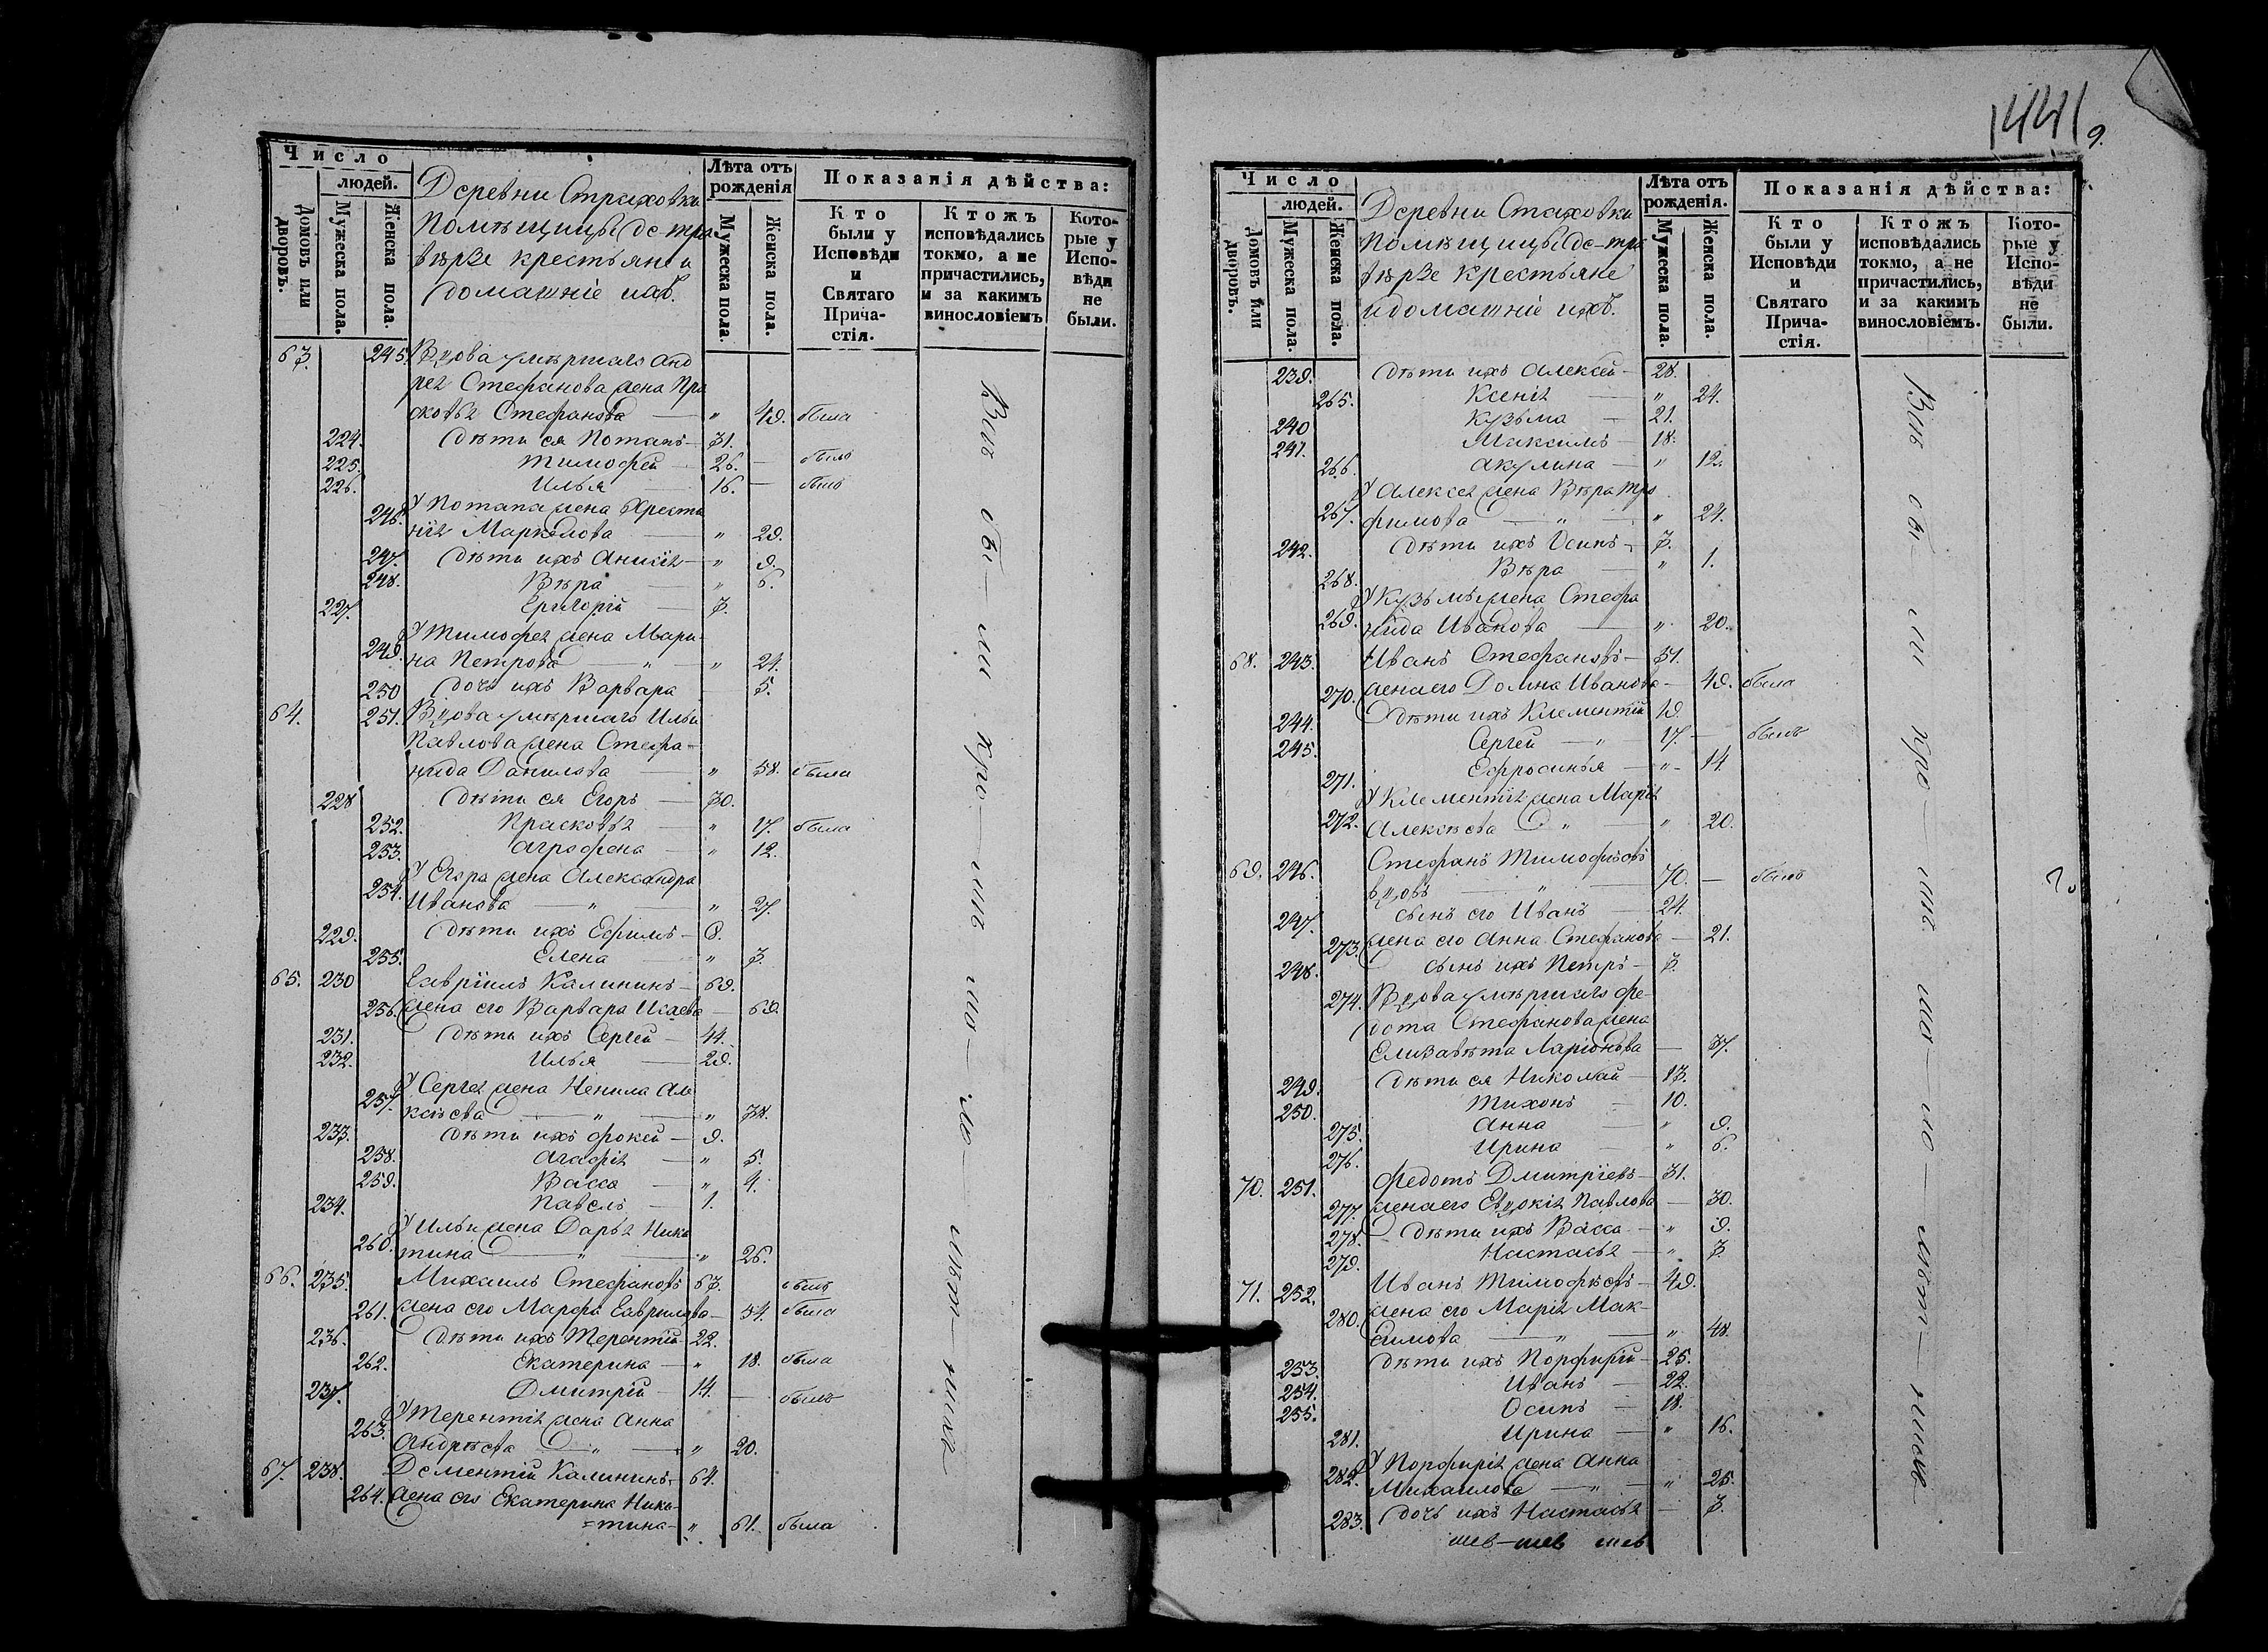 Число
людей.
Домовъ или дворовъ.
Мужеска пола.
Женска пола.
Деревни Страховки
Помѣщицы де-тра
вѣрзе крестьяне и
домашніе ихъ.
Лѣта отъ рожденія
Мужеска пола.
Женска пола.
Показанія дѣйства:
Кто были у Исповѣди и Святаго Прича-стія.
Ктожъ исповѣдались токмо, а не причастились, и за какимъ винословіемъ
Кото-рые у Испо-вѣди не были.
63. 245. Вдова умѣршаго Анд
рея Стефанова жена Пра
сковья Стефанова — " 49. была
224. Дѣти ея Потапъ — 31.
225. Тимофей — 26. — былъ
226. Илья 16. — былъ
246. У Потапа жена Христи
нія Маркелова — " 29.
247. Дѣти ихъ Анисія — " 9.
248. Вѣра — " 6.
227. Григорій — 3.
249. У Тимофея жена Мари
на Петрова — " — " 24.
250 дочь ихъ Варвара — 5.
64. 251. Вдова умѣршаго Ильи
Павлова жена Стефа-
нида Данилова — " 58. была
228 Дѣти ея Егоръ — 30.
252. Прасковья — " 17. была
253. Агрофена — " 12.
254. У Егора жена Александра
Иванова — " — " 27.
229. Дѣти ихъ Ефимъ — 8.
255. Елена — " 3.
65. 230 Гавріилъ Калининъ — 69.
256. жена его Варвара Исаева — 69.
231. Дѣти ихъ Сергей — 44.
232. Илья — 29.
257. У Сергея жена Ненила Але
ксѣева — " — " 38.
233. Дѣти ихъ Фокей — 9.
258. Агафія — " 5.
259. Васса — " 4.
234. Павелъ — 1.
260. У Ильи жена Дарья Ники
тина — " — " 26.
66. 235. Михаилъ Стефановъ 63. былъ
261. жена его Марфа Гаврилова — 54. была
236. Дѣти ихъ Терентій — 22.
262. Екатерина — " 18. была
237. Дмитрій — 14. — былъ
263. У Терентія жена Анна
Андрѣева — " — " 20.
67. 238. Дементій Калининъ — 64.
264. жена его Екатерина Ники-
=тина — " 61. была
Вид об — ли кре — ще
1441
9.
Число
людей.
Домовъ или дворовъ.
Мужеска пола.
Женска пола.
Деревни Стаховки
Помѣщицы де-тра
вѣрзе крестьяне
и домашніе ихъ.
Лѣта отъ рожденія.
Мужеска пола.
Женска пола.
Показанія дѣйства:
Кто были у Исповѣди и Святаго Прича-стія.
Ктожъ исповѣдались токмо, а не причастились, и за какимъ винословіемъ.
Кото-рые у Испо-вѣди не были.
239. Дѣти ихъ Алексѣй — 28.
265. Ксенія — " 24.
240 Кузьма — 21.
241. Максимъ — 18.
266. Акулина — " 12.
267. У Алексея жена Вѣра Тро
фимова — " — " 24.
242. Дѣти ихъ Осипъ — 3.
268. Вѣра — " 1.
269. У Кузьмы жена Стефа
нида Иванова — " 20.
68. 243. Иванъ Стефановъ — 51.
270. жена его Домна Иванова — 49. была
244. Дѣти ихъ Клементій 19.
245. Сергей — " 17. — былъ
271. Ефросинья — " — 14.
272. У Клементія жена Марія
Алексѣева — " — " 20.
69. 246. Стефанъ Тимофѣевъ
вдовъ — " — 70. — былъ
247. сынъ его Иванъ — 24.
273. жена его Анна Стефанова — 21.
248. сынъ ихъ Петръ — 3.
274. Вдова умѣршаго Фе-
дота Стефанова жена
Елизавѣта Ларіонова — 37.
249. Дѣти ея Николай — 13.
250. Тихонъ — 10.
275. Анна — " 9.
276. Ирина — " 6.
70. 251. Федотъ Дмитріевъ — 31.
277. жена его Евдокія Павлова — 30.
278. Дѣти ихъ Васса — " 9.
279. Настасья — " 3
71. 252. Иванъ Тимофѣевъ — 49.
280. жена его Марія Мак-
симова — " — " 48.
253. Дѣти ихъ Порфирій — 25.
254. Иванъ — 22.
255. Осипъ — 18.
281. Ирина — " 16.
282. У Порфирія жена Анна
Михаилова — " — " 25.
283. дочь ихъ Настасья — 3.